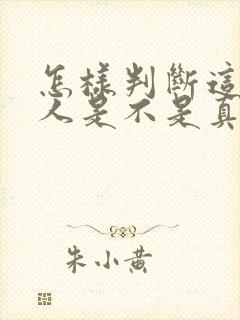 怎樣判斷這
人是不是真
朱小黄